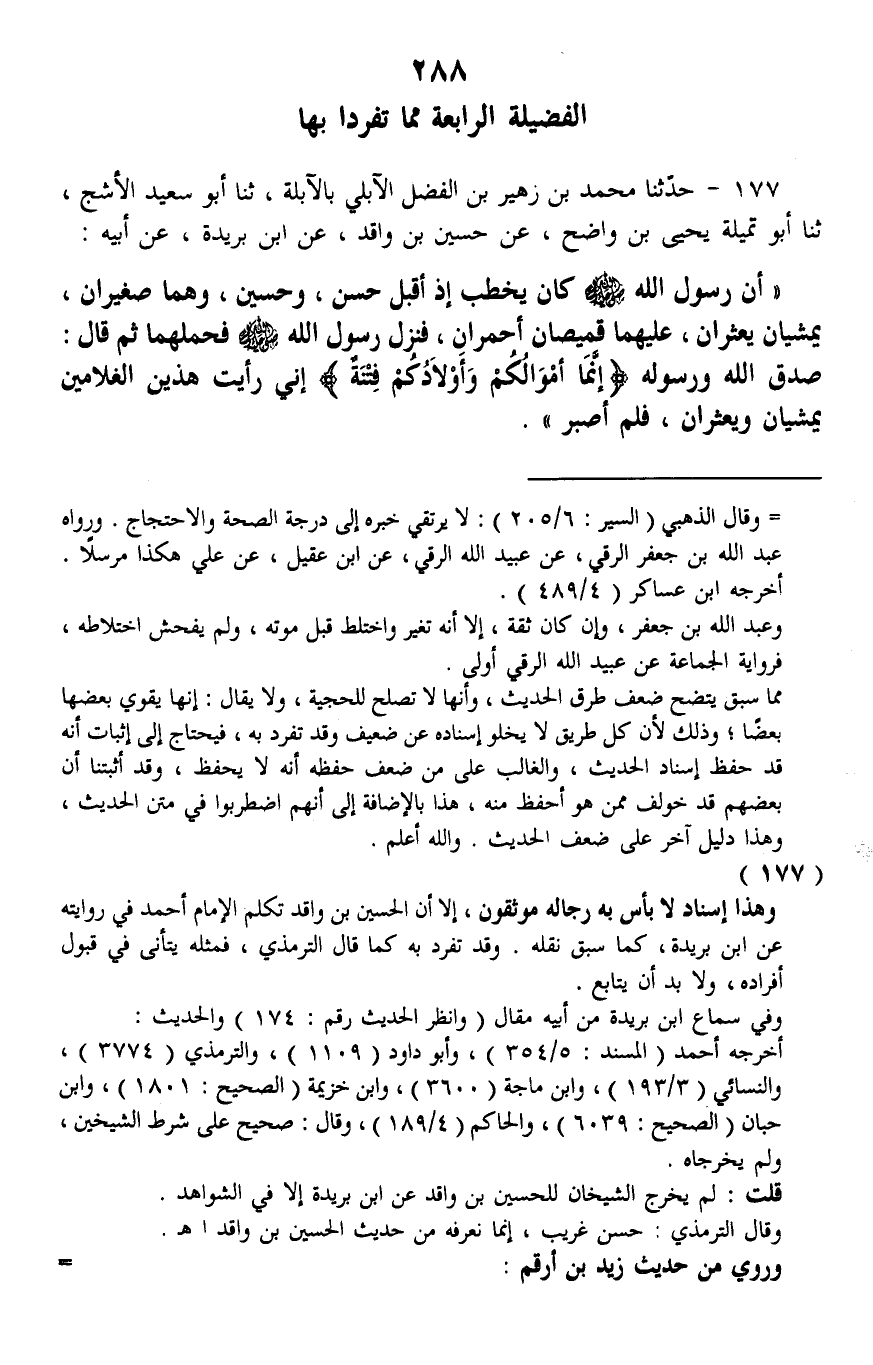 ٢٨٨
الفضيلة الرابعة مما تفردا بها
١٧٧ - حدّثنا محمد بن زهير بن الفضل الآبلي بالآبلة ، ثنا أبو سعيد الأشج ،
ثنا أبو تميلة يحيى بن واضح ، عن حسين بن واقد ، عن ابن بريدة ، عن أبيه :
« أن رسول الله ﷺ كان يخطب إذ أقبل حسن ، وحسين ، وهما صغيران ،
يمشيان يعثران ، عليهما قميصان أحمران ، فنزل رسول الله ﷺ فحملهما ثم قال :
صدق الله ورسوله ﴿ إِنَّمَا أَمْوَالُكُمْ وَأَوْلاَدُكُمْ فِتْنَةٌ ﴾ إني رأيت هذين الغلامين
يمشيان ويعثران ، فلم أصبر » .
= وقال الذهبي ( السير : ٢٠٥/٦ ) : لا يرتقي خبره إلى درجة الصحة والاحتجاج . ورواه
عبد الله بن جعفر الرقي ، عن عبيد الله الرقي ، عن ابن عقيل ، عن علي هكذا مرسلًا .
أخرجه ابن عساكر ( ٤٨٩/٤ ) .
وعبد الله بن جعفر ، وإن كان ثقة ، إلا أنه تغير واختلط قبل موته ، ولم يفحش اختلاطه ،
فرواية الجماعة عن عبيد الله الرقي أولى .
مما سبق يتضح ضعف طرق الحديث ، وأنها لا تصلح للحجية ، ولا يقال : إنها يقوي بعضها
بعضًا ؛ وذلك لأن كل طريق لا يخلو إسناده عن ضعيف وقد تفرد به ، فيحتاج إلى إثبات أنه
قد حفظ إسناد الحديث ، والغالب على من ضعف حفظه أنه لا يحفظ ، وقد أثبتنا أن
بعضهم قد خولف ممن هو أحفظ منه ، هذا بالإضافة إلى أنهم اضطربوا في متن الحديث ،
وهذا دليل آخر على ضعف الحديث . والله أعلم .
( ١٧٧ )
وهذا إسناد لا بأس به رجاله موثقون ، إلا أن الحسين بن واقد تكلم الإمام أحمد في روايته
عن ابن بريدة ، كما سبق نقله . وقد تفرد به كما قال الترمذي ، فمثله يتأنى في قبول
أفراده ، ولا بد أن يتابع .
وفي سماع ابن بريدة من أبيه مقال ( وانظر الحديث رقم : ١٧٤ ) والحديث :
أخرجه أحمد ( المسند : ٣٥٤/٥ ) ، وأبو داود ( ١١٠٩ ) ، والترمذي ( ٣٧٧٤ ) ،
والنسائي ( ١٩٣/٣ ) ، وابن ماجة ( ٣٦٠٠ ) ، وابن خزيمة ( الصحيح : ١٨٠١ ) ، وابن
حبان ( الصحيح : ٦٠٣٩ ) ، والحاكم ( ١٨٩/٤ ) ، وقال : صحيح على شرط الشيخين ،
ولم يخرجاه .
قلت : لم يخرج الشيخان للحسين بن واقد عن ابن بريدة إلا في الشواهد .
وقال الترمذي : حسن غريب ، إنما نعرفه من حديث الحسين بن واقد ا هـ .
وروي من حديث زيد بن أرقم : =